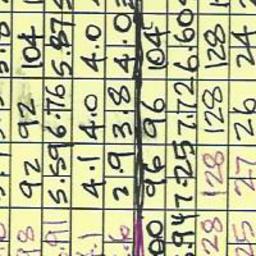 8 92 92 104
.91 5.59 6.76 5.87
.1 4.1 4.0 4.0
.6 3.9 3.8 4.0
00 96 96 104
.94 7.25 7.72 6.60
28 128 128 128
25 27 26 24